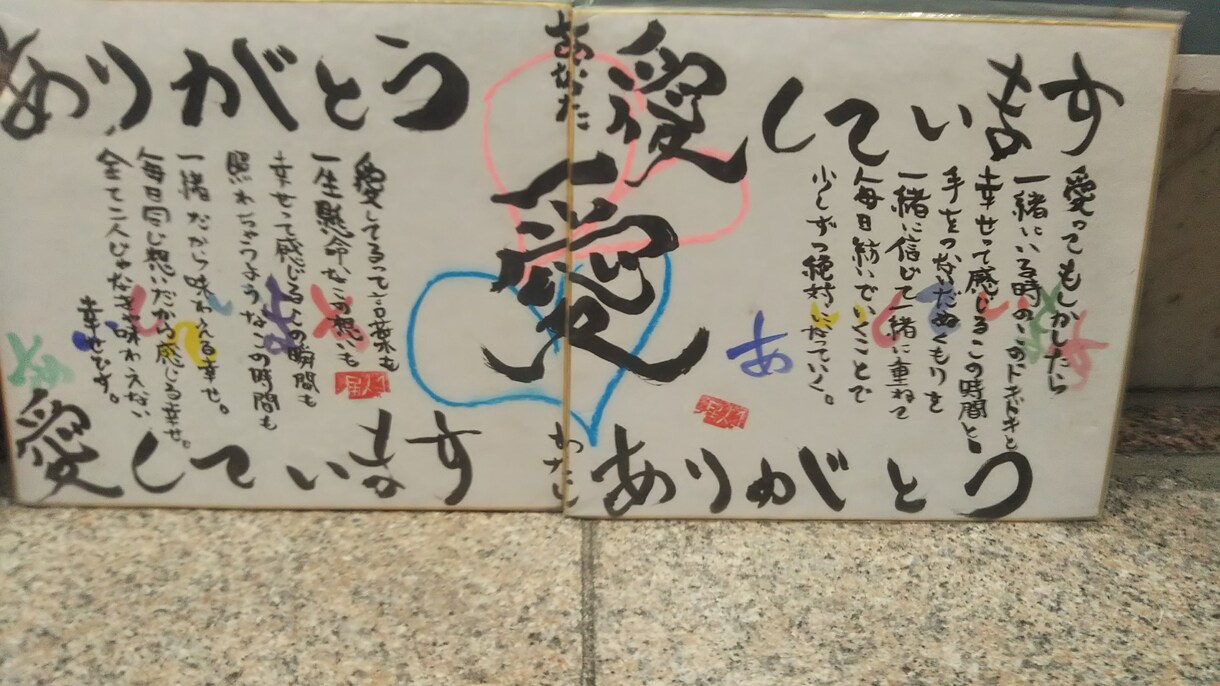 ありがとう
愛しています
あなた
愛
わたし
愛ってもしかしたら
一緒にいる時のこのドキドキと
幸せって感じるこの時間と
手をつないだぬくもりを
一緒に信じて一緒に重ねて
毎日紡いでいくことで
少しずつ絶対になっていく。
愛してるって言葉も
一生懸命なこの想いも
幸せって感じるこの瞬間も
照れちゃうようなこの時間も
一緒だから味わえる幸せ。
毎日同じ想いだから感じる幸せ。
全て二人じゃなきゃ味わえない
幸せです。
愛しています
ありがとう